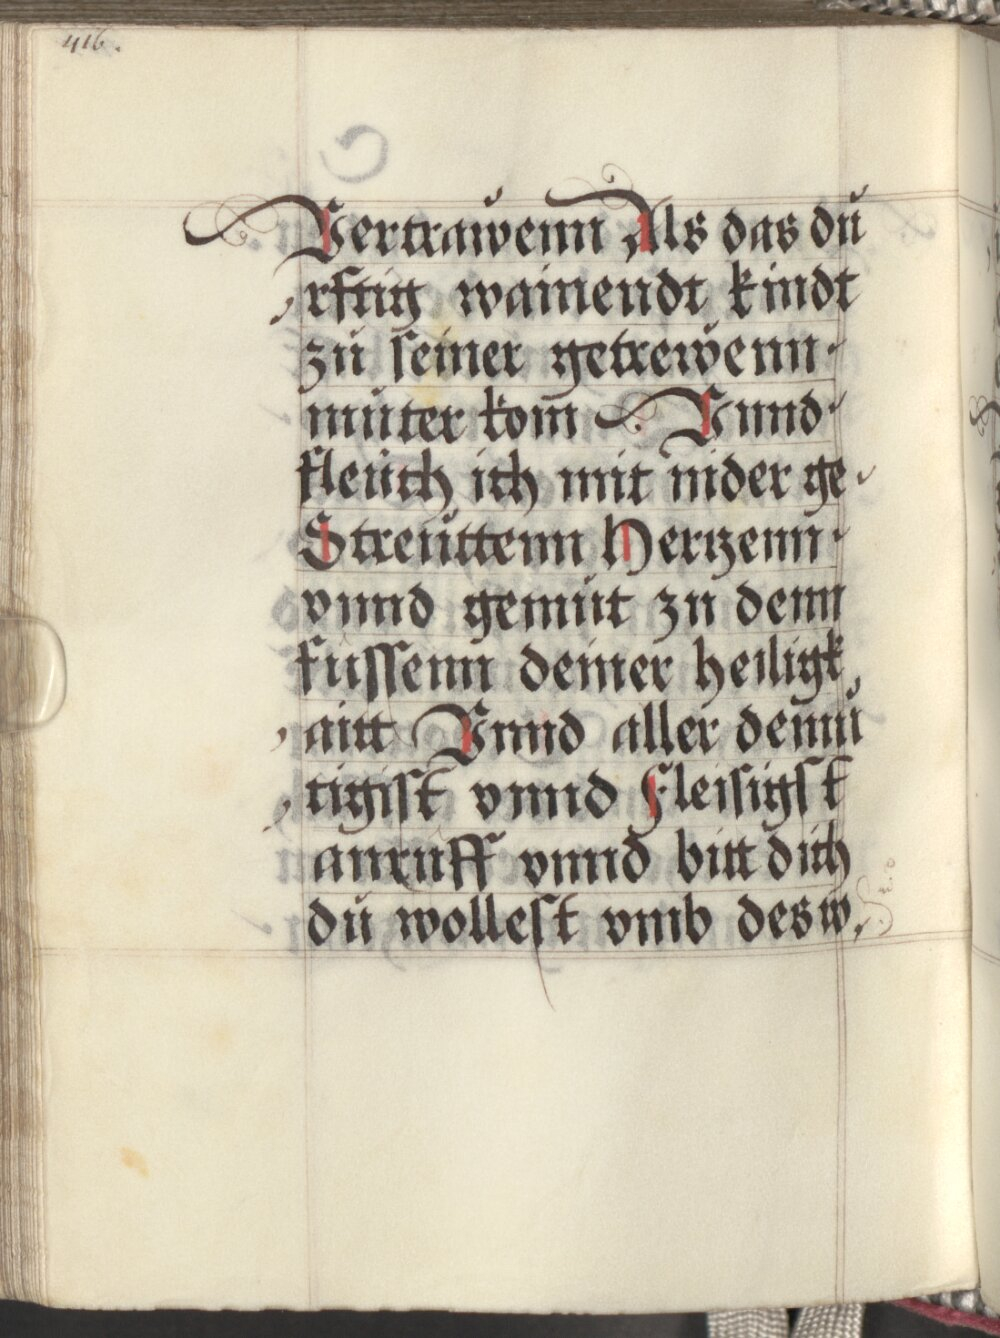 416.
Vertrawenn Als das dů
rftig wainendt kindt
zů seiner getrewenn
můter kom Vnnd
fleuch ich mit nider ge
Streuttenn Hertzenn
vnnd gemüt zu denn
füssenn deiner heiligk
aitt Vnnd aller demů
tigist vnnd Fleisigst
anruff vnnd bitt dich
dů wollest vmb des w